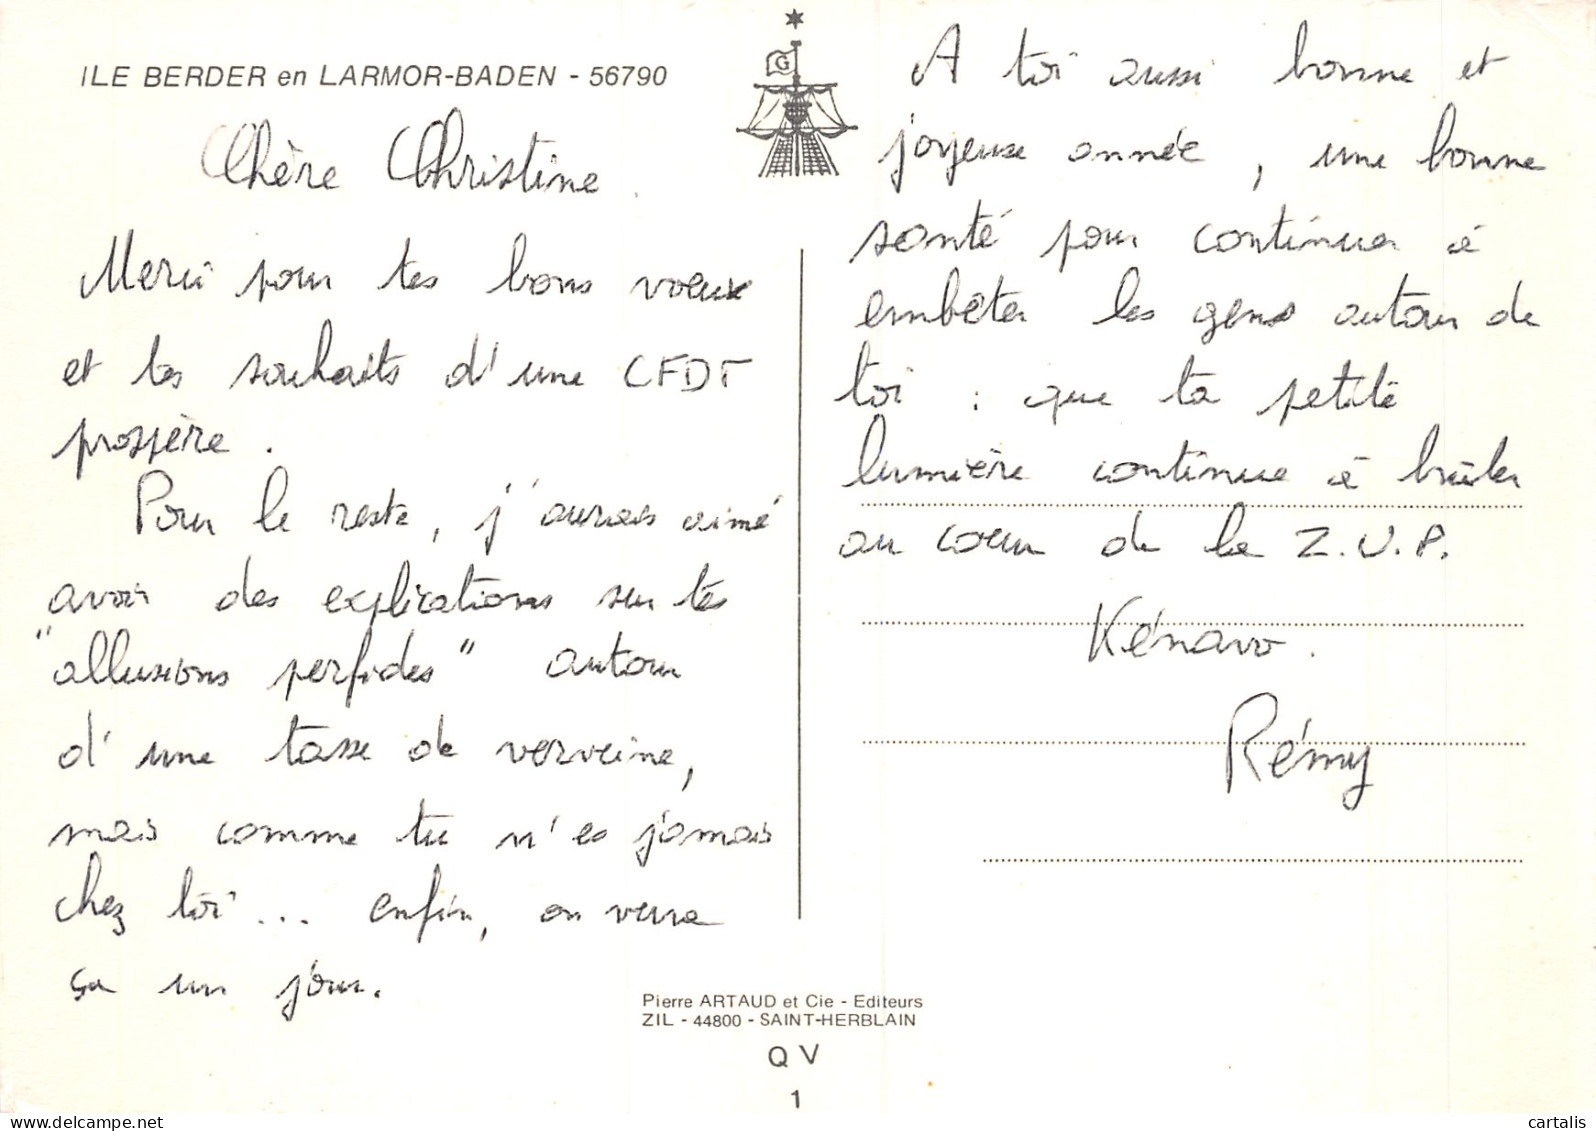 ILE BERDER en LARMOR-BADEN - 56790
Chère Christine.
Merci pour tes bons voeux
et les souhaits d'une CFDT
prospère.
Pour le reste, j'aurais aimé
avoir des explications sur tes
"allusions perfides" autour
d'une tasse de verveine,
mais comme tu n'es jamais
chez toi... enfin, on verra
ça un jour.
G
A toi aussi bonne et
joyeuse année, une bonne
santé pour continuer à
embêter les gens autour de
toi : que ta petite
lumière continue à brûler
au coeur de la Z.U.P.
Kénavo.
Rémy
Pierre ARTAUD et Cie - Editeurs
ZIL - 44800 - SAINT-HERBLAIN
QV
1
www.delcampe.net
cartalis